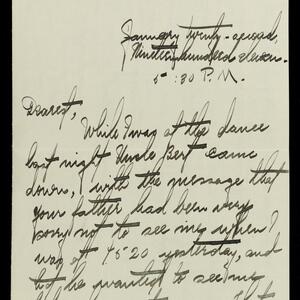 January twenty-second,
Nineteen hundred eleven.
5:30 P.M.
Dearest,
While I was at the dance
last night Uncle Bert came
down, with the message that
your father had been very
sorry not to see me, when I
was at 4520 yesterday, and
that he wanted to see me